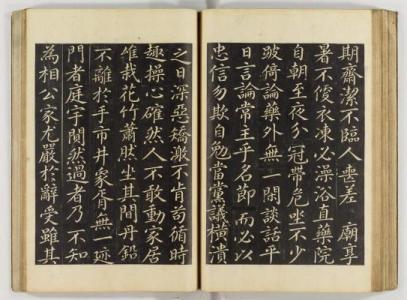 期齋潔不臨人喪差 廟享
暑不俊衣凍必澡浴直藥院
自朝至夜分冠帶危坐不少
跛倚論藥外無一閑談話平
日言論常主乎名節而必以
忠信勿欺自勉當黨議橫潰
之日深惡矯激不肯苟循時
趣操心確然人不敢動家居
惟栽花竹蕭然坐其間丹鉛
不離於手市井家胥無一延
門者庭宇闃然過者乃不知
為相公家尤嚴於辭受雖其